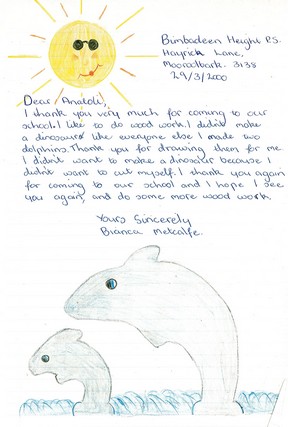 Bimbadeen Height P.S.
Hayrick Lane,
Mooroolbark. 3138
29/3/2000
Dear Anatoli,
I thank you very much for coming to our
school. I like to do wood work. I didn't make
a dinosaurs like everyone else I made two
dolphins. Thank you for drawing them for me.
I didn't want to make a dinosaur because I
didn't want to cut myself. I thank you again
for coming to our school and I hope I see
you again, and do some more wood work.
Yours Sincerely
Bianca Metcalfe.